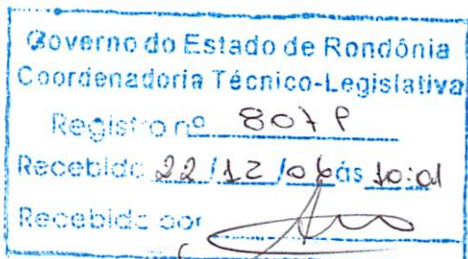 Governo do Estado de Rondônia
Coordenadoria Técnico-Legislativa
Registro nº 807P
Recebido 22/12/06 às 10:01
Recebido por